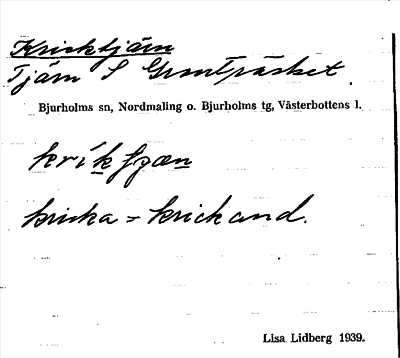 Kricktjärn
Tjärn S Grunträsket.
Bjurholms sn, Nordmaling o. Bjurholms tg, Västerbottens l.
kricka = krickand.
Lisa Lidberg 1939.